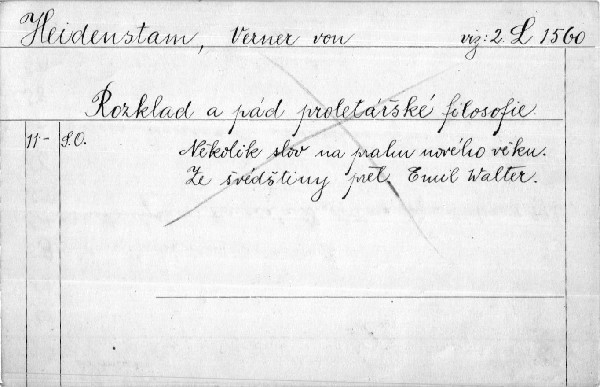 Heidenstam, Verner von viz: 2. L 1560
Rozklad a pád proletářské filosofie.
11- S.O. Několik slov na prahu nového věku.
Ze švédštiny přel. Emil Walter.